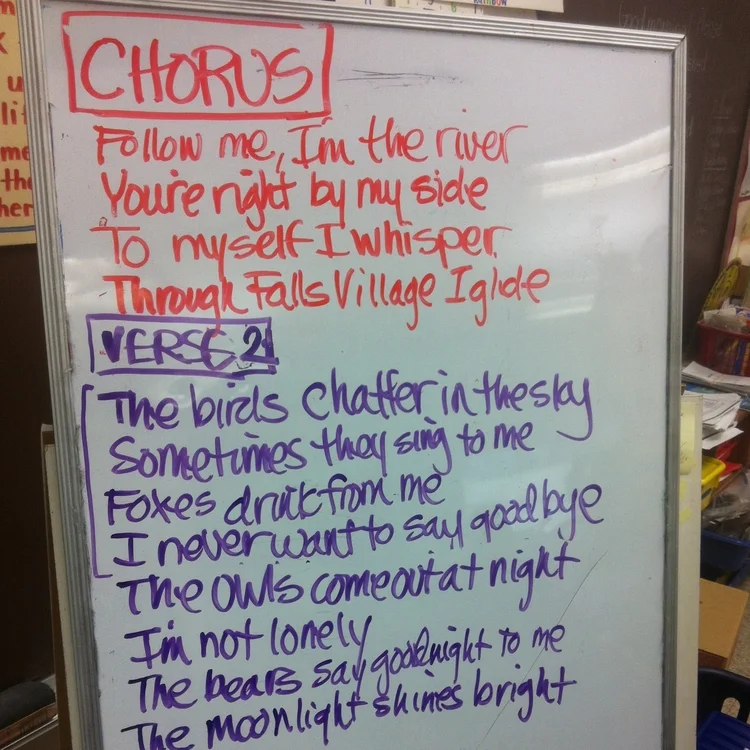 CHORUS
Follow me, I'm the river
You're right by my side
To myself I whisper
Through Falls Village I glide
VERSE 2
The birds chatter in the sky
Sometimes they sing to me
Foxes drink from me
I never want to say goodbye
The owls come out at night
I'm not lonely
The bears say goodnight to me
The moonlight shines bright